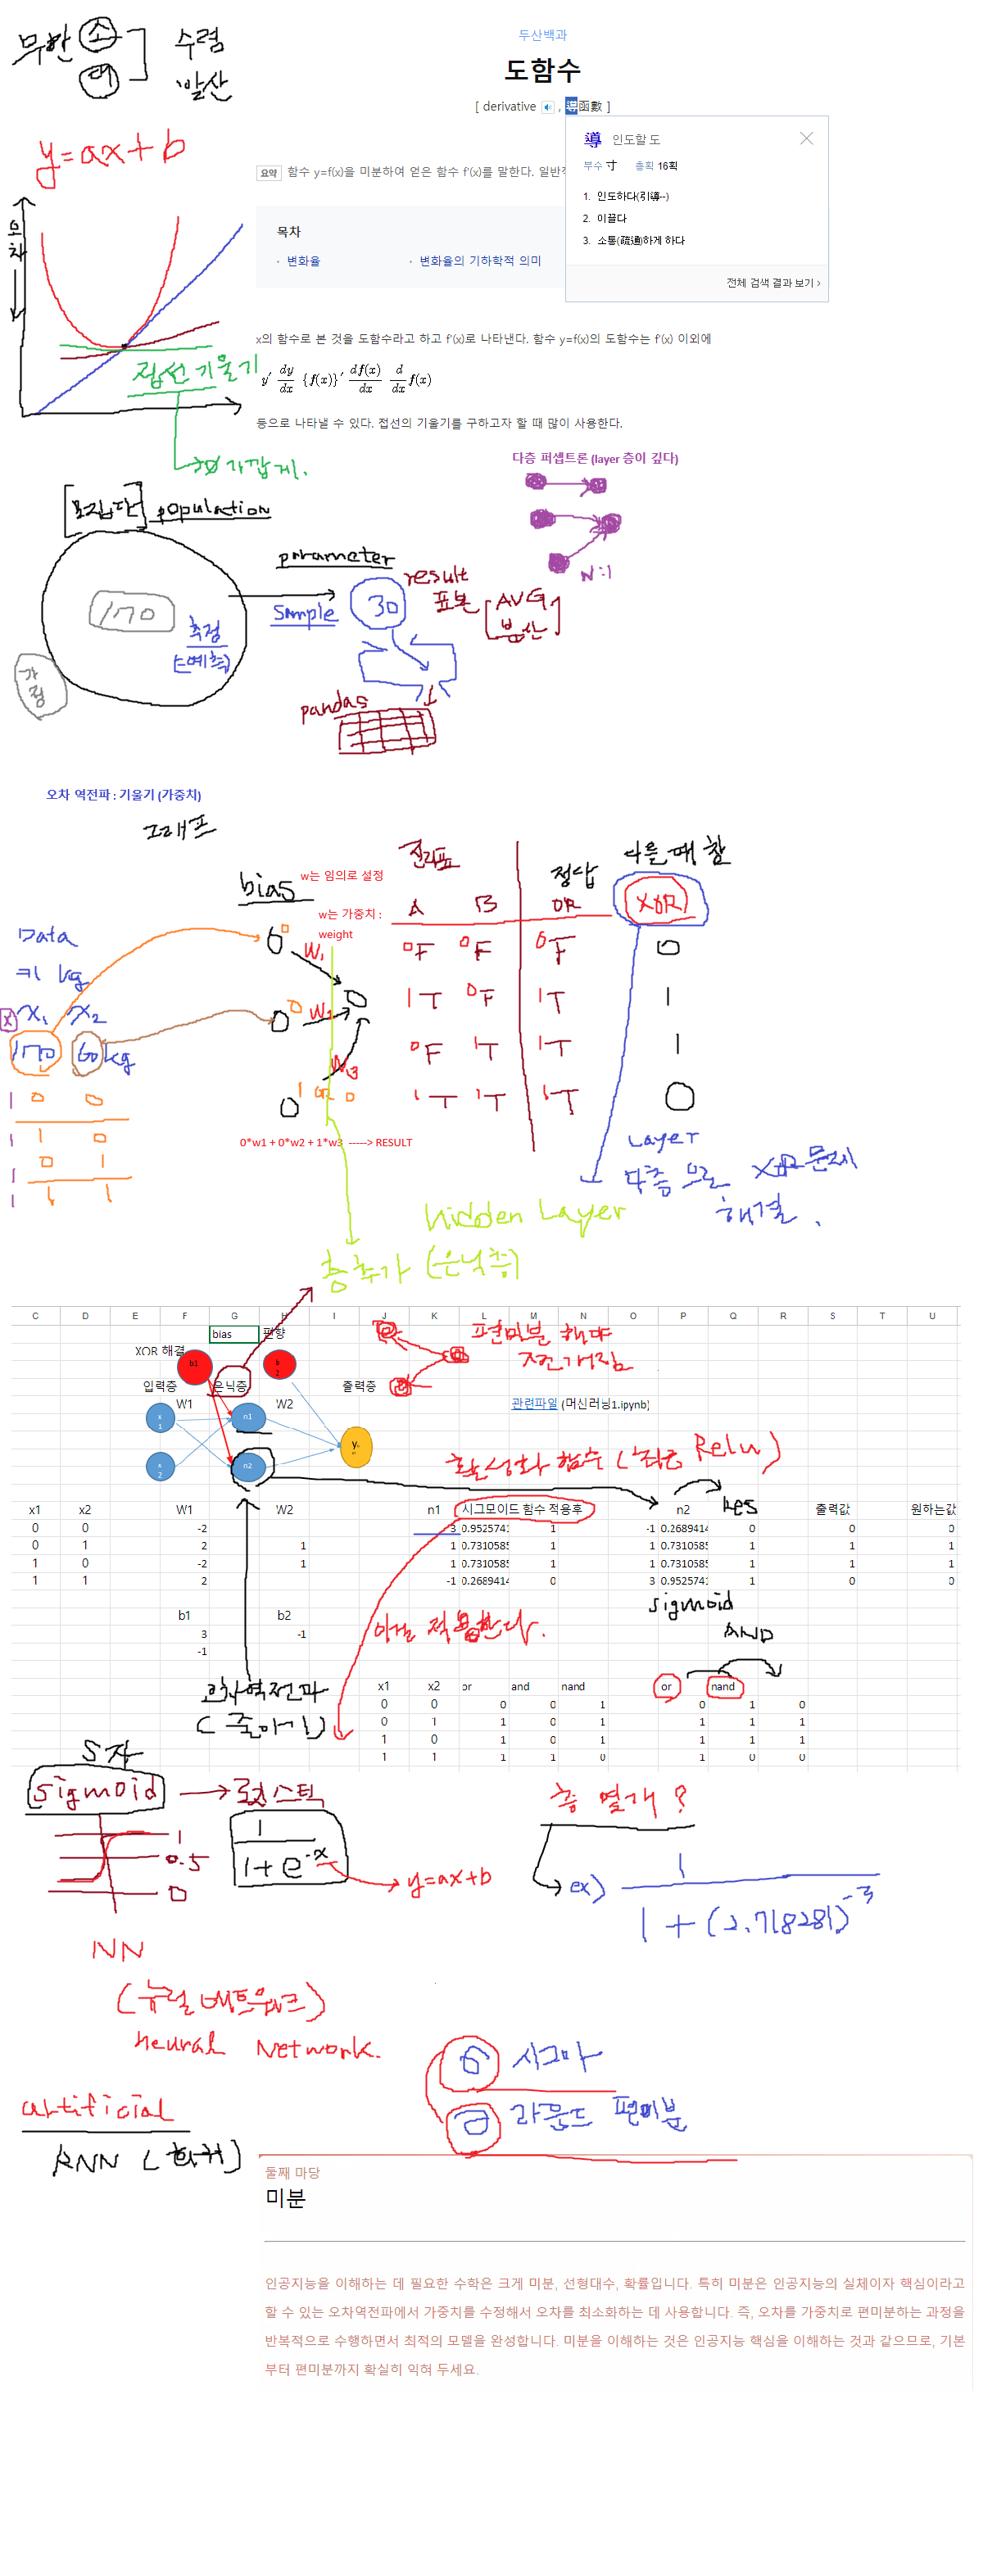 무한 소
대
수렴
발산
두산백과
도함수
[ derivative , 導函數 ]
導 인도할 도
부수 寸 총획 16획
1. 인도하다(引導--)
2. 이끌다
3. 소통(疏通)하게 하다
전체 검색 결과 보기 ›
y=ax+b
요약 함수 y=f(x)을 미분하여 얻은 함수 f'(x)를 말한다. 일반적
목차
· 변화율
· 변화율의 기하학적 의미
오차
접선 기울기
0 가깝게.
x의 함수로 본 것을 도함수라고 하고 f'(x)로 나타낸다. 함수 y=f(x)의 도함수는 f'(x) 이외에
y′ dy/dx {f(x)}′ df(x)/dx d/dx f(x)
등으로 나타낼 수 있다. 접선의 기울기를 구하고자 할 때 많이 사용한다.
다층 퍼셉트론 (layer 층이 깊다)
N:1
[모집단] population
170
추정
(=예측)
가정
parameter
Sample
30
result
표본
[AVG
분산]
pandas
오차 역전파 : 기울기 (가중치)
그래프
bias
w는 임의로 설정
w는 가중치 :
weight
Data
키 kg
X X1 X2
170 60kg
1 0 0
1 1 0
1 0 1
1 1 1
0 0
0 0
0 1 or 0
W1
W2
W3
0
0*w1 + 0*w2 + 1*w3 -----> RESULT
진리표
정답
다를 때 참
A B OR XOR
0F 0F 0F 0
1T 0F 1T 1
0F 1T 1T 1
1T 1T 1T 0
Layer
다층으로 XOR문제
해결.
hidden Layer
층추가 (은닉층)
C D E F G H I J K L M N O P Q R S T U
bias 편향
XOR 해결
b1
b 2
입력층 은닉층 출력층
W1 W2
x 1
x 2
n1
n2
y
편미분 해야
관련파일 (머신러닝1.ipynb)
활성화 함수 (최근 Relu)
x1 x2 W1 W2 n1 시그모이드 함수 적용후 n2 res 출력값 원하는값
0 0 -2 3 0.9525741 1 -1 0.2689414 0 0 0
0 1 2 1 1 0.7310585 1 1 0.7310585 1 1 1
1 0 -2 1 1 0.7310585 1 1 0.7310585 1 1 1
1 1 2 -1 0.2689414 0 3 0.9525741 1 0 0
b1 b2
3 -1
-1
sigmoid
AND
이걸 적용한다.
x1 x2 or and nand or nand
0 0 0 0 1 0 1 0
0 1 1 0 1 1 1 1
1 0 1 0 1 1 1 1
1 1 1 1 0 1 0 0
(줄이기)
S자
sigmoid
로지스틱
1
0.5
0
1
1+e^-x
y=ax+b
층 몇개?
ex)
1
1+(2.718281)^-3
NN
(뉴럴 네트워크)
neural Network.
artificial
RNN (회귀)
σ 시그마
∂ 라운드 편미분
둘째 마당
미분
인공지능을 이해하는 데 필요한 수학은 크게 미분, 선형대수, 확률입니다. 특히 미분은 인공지능의 실체이자 핵심이라고
할 수 있는 오차역전파에서 가중치를 수정해서 오차를 최소화하는 데 사용합니다. 즉, 오차를 가중치로 편미분하는 과정을
반복적으로 수행하면서 최적의 모델을 완성합니다. 미분을 이해하는 것은 인공지능 핵심을 이해하는 것과 같으므로, 기본
부터 편미분까지 확실히 익혀 두세요.